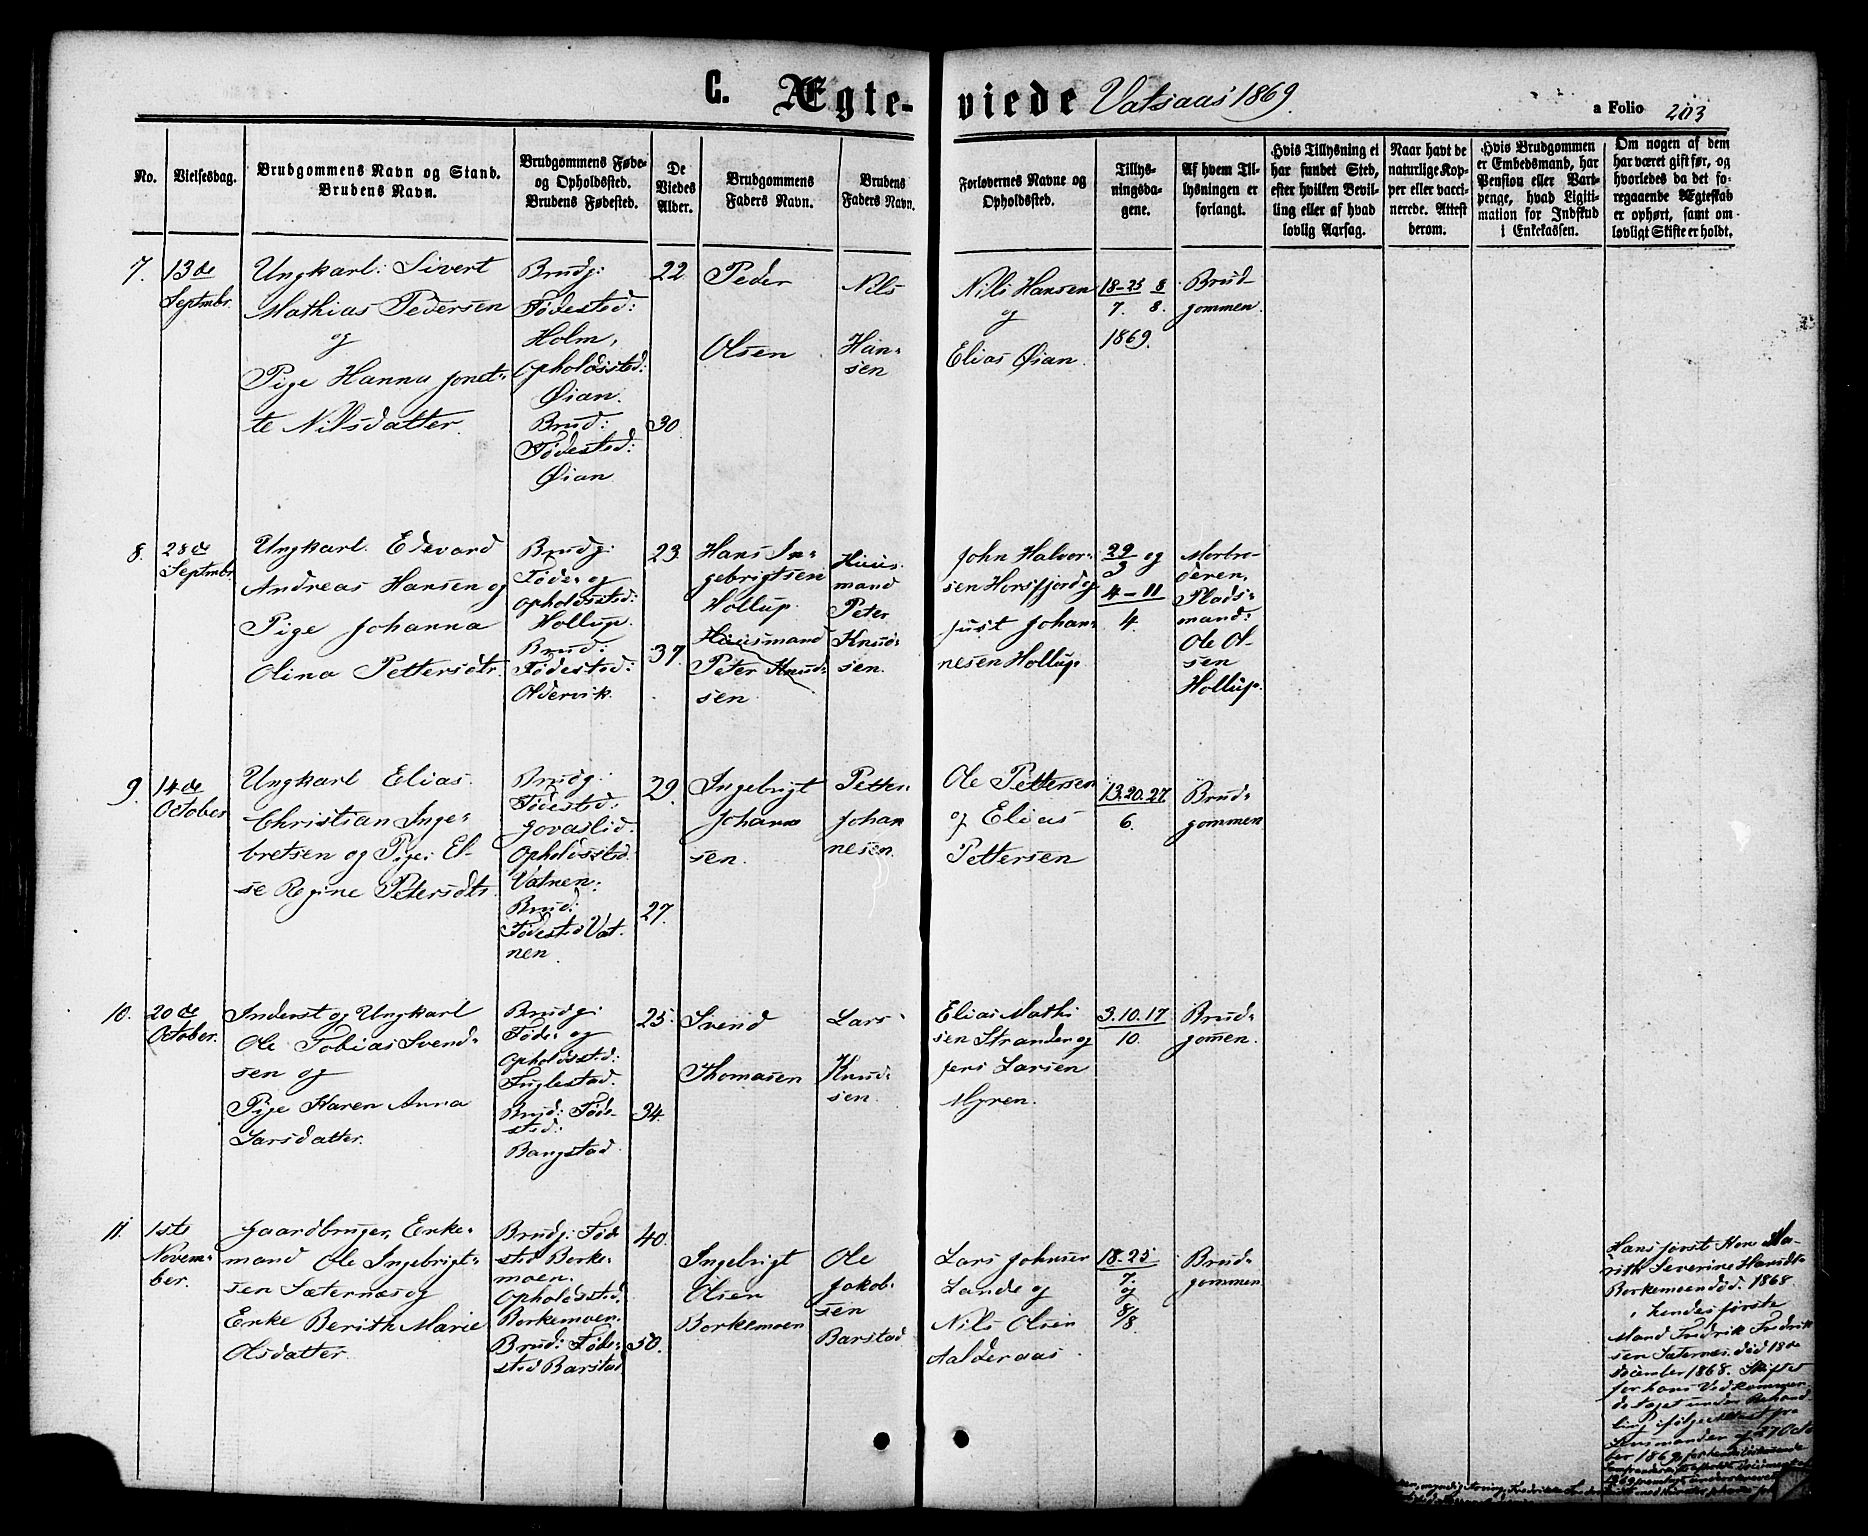 C. Ægte- viede Vatsaas 1869. a Folio 203
No.
Vielsesdag.
Brudgommens Navn og Stand.
Brudens Navn.
Brudgommens Føde-
og Opholdssted.
Brudens Fødested.
De
Viedes
Alder.
Brudgommens
Faders Navn.
Brudens
Faders Navn.
Forlovernes Navne og
Opholdssted.
Tillys-
ningsda-
gene.
Af hvem Til-
lysningen er
forlangt.
Hvis Tillysning ei
har fundet Sted,
efter hvilken Bevil-
ling eller af hvad
lovlig Aarsag.
Naar havt de
naturlige Kop-
per eller vacci-
nerede. Attest
derom.
Hvis Brudgommen
er Embedsmand, har
Pension eller Vart-
penge, hvad Ligiti-
mation for Indskud
i Enkekassen.
Om nogen af dem
har været gift før, og
hvorledes da det fo-
regaaende Ægteskab
er ophørt, samt om
lovligt Skifte er holdt.
7.
13de
Septmbr.
Ungkarl: Sivert
Mathias Pedersen
og
Pige Hanna Jonet-
te Nilsdatter.
Brudg:
Fødested:
Holm,
Opholdssted:
Øian.
Brud:
Fødested:
Øian
22
30.
Peder
Olsen
Nils
Han-
sen
Nils Hansen
og
Elias Øian.
18-25 8
7. 8.
1869.
Brud-
gommen.
8.
28de
Septmbr
Ungkarl. Edevard
Andreas Hansen og
Pige Johanna
Olina Pettersdtr.
Brudg:
Føde- og
Opholdssted:
Hollup.
Brud:
Fødested:
Oldervik.
23.
37.
Hans In-
gebrigtsen
Hollup.
Huusmand
Peter Knud-
sen
Huus-
mand
Peter
Knud-
sen.
John Halvor-
sen Horsfjord og
Just Johan-
nesen Hollup
29 og
3
4-11
4.
Morbro-
deren,
Plads-
mand:
Ole Ol-
sen
Hollup.
9.
14de
October
Ungkarl Elias
Christian Inge-
bretsen og Pige: El-
se Regine Petersdtr.
Brudg:
Fødested:
Govaslid.
Opholdssted.
Vatnen:
Brud:
Fødested Vat-
nen.
29.
27.
Ingebrigt
Johan-
sen.
Petter
Johan
nesen.
Ole Pettersen
og Elias
Pettersen
13.20.27.
6.
Brud-
gommen
10.
20de
October.
Inderst og Ungkarl
Ole Tobias Svend-
sen og
Pige Karen Anna
Larsdatter.
Brudg:
Føde- og
Opholdssted:
Fuglestad.
Brud: Føde-
sted:
Bangstad
25.
34.
Svend
Thomasen
Lars
Knud-
sen.
Elias Mathi
sen Stranden og
Jens Larsen
Myren.
3.10.17
10.
Brud-
gommen.
11.
1ste
Novem-
ber.
Gaardbruger, Enke-
mand Ole Ingebrigt-
sen Sæternæs og
Enke Berith Marie
Olsdatter.
Brudg: Føde
sted Borke-
moen.
Opholdssted.
Borkemoen.
Brud: Føde-
sted Barstad
40.
50.
Ingebrigt
Olsen
Borkemoen
Ole
Jakob-
sen
Barstad
Lars Johnsen
Lande og
Nils Olsen
Aalderaas.
18-25
7.
og
8/8
Brud-
gommen
Hans første Kone Ma-
rith Severine Hansdtr
Borkemoen død. 1868
, hendes første
Mand Fredrik Fredrik
sen Sæternes død 18de
December 1868. Skiftet
for hans Vedkommen
de taget under Behand
ling ifølge Attest fra
Lensmanden af 27 Octo
ber 1869